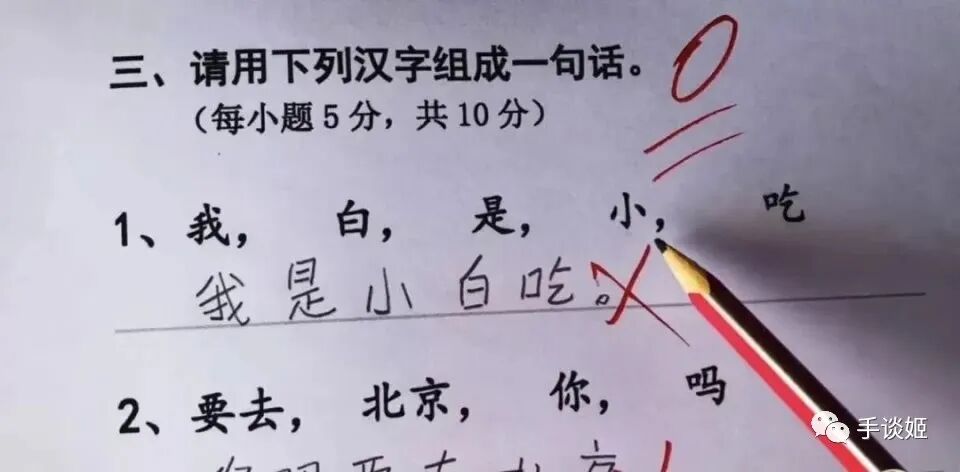 三、请用下列汉字组成一句话。
（每小题5分，共10分）
0
1、我，　白，　是，　小，　吃
我是小白吃。
2、要去，　北京，　你，　吗
手谈姬